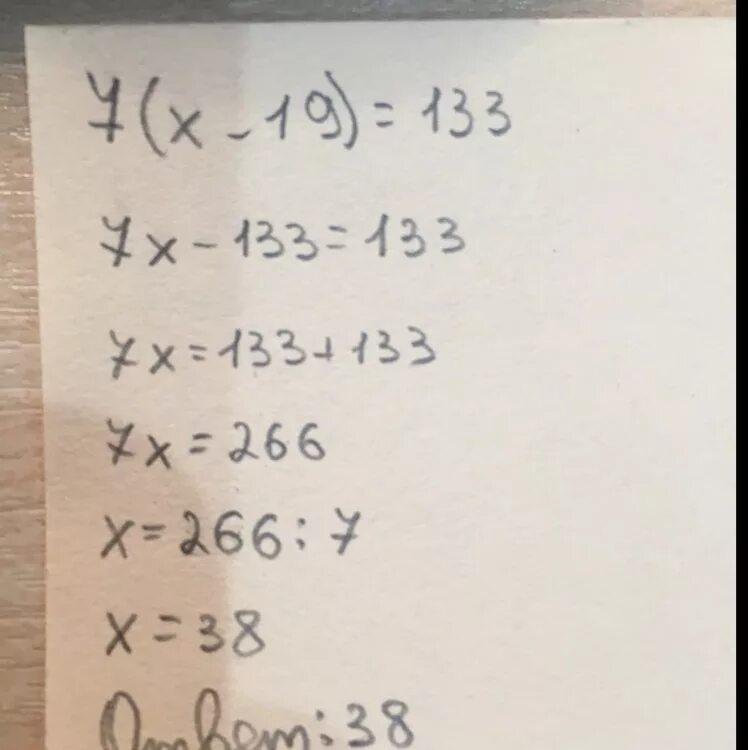 7(x - 19) = 133
7x - 133 = 133
7x = 133 + 133
7x = 266
x = 266 : 7
x = 38
Ответ: 38